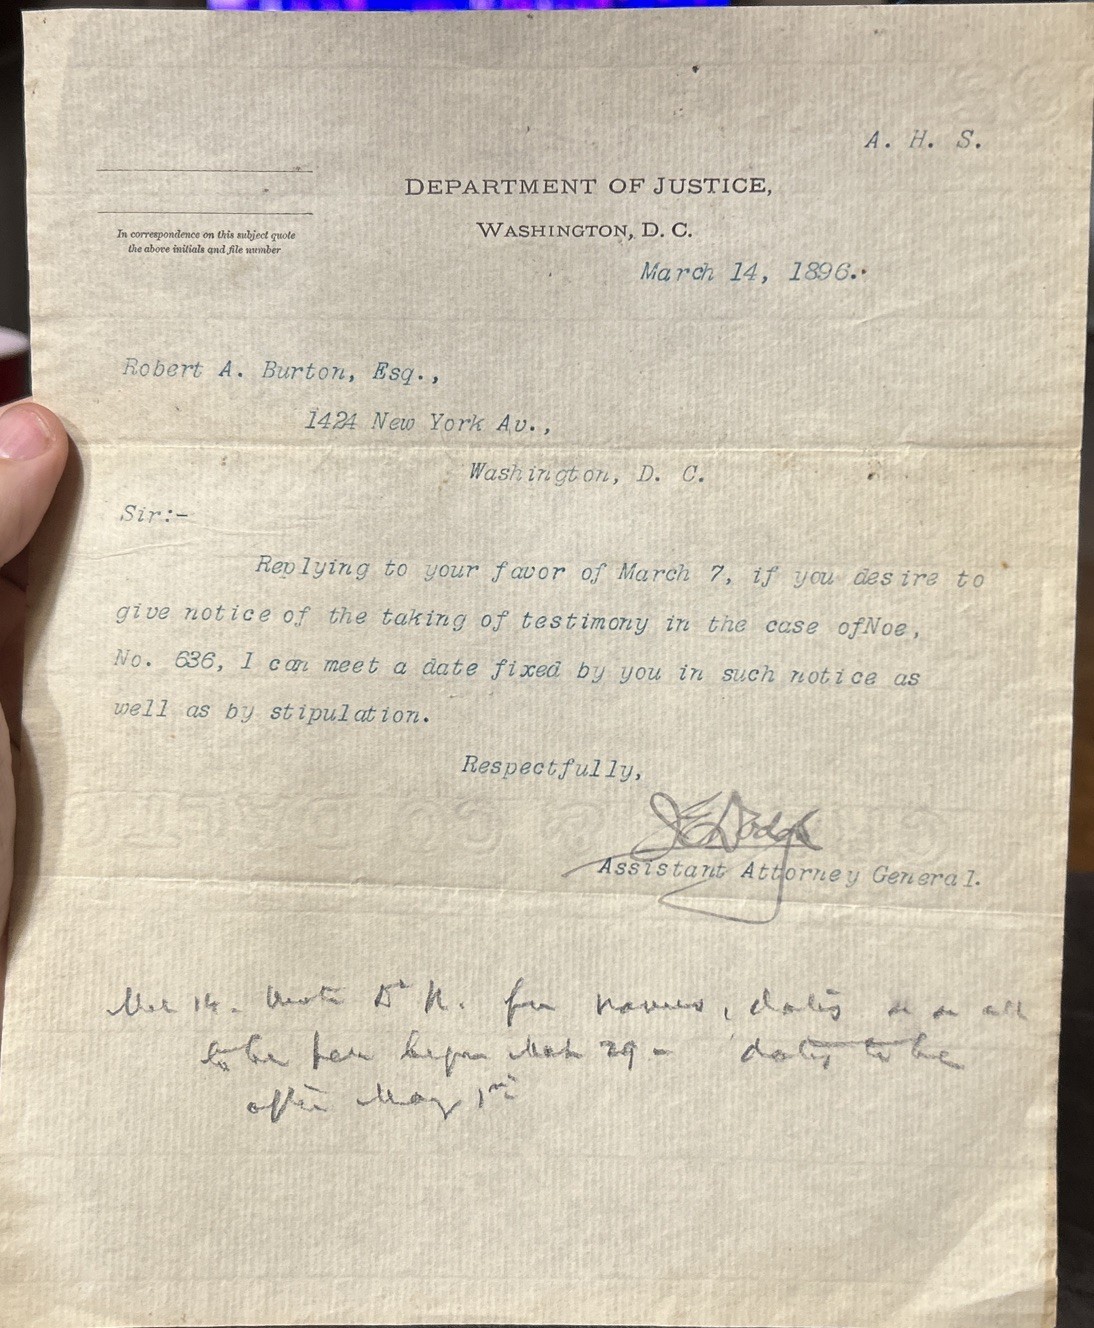 A. H. S.
DEPARTMENT OF JUSTICE,
WASHINGTON, D. C.
In correspondence on this subject quote
the above initials and file number
March 14, 1896.
Robert A. Burton, Esq.,
1424 New York Av.,
Washington, D. C.
Sir:-
Replying to your favor of March 7, if you desire to
give notice of the taking of testimony in the case ofNoe,
No. 636, I can meet a date fixed by you in such notice as
well as by stipulation.
Respectfully,
J E Dodge
Assistant Attorney General.
14. Wrote N. for names, dates
to be before March 29 - dates to be
after May 1st